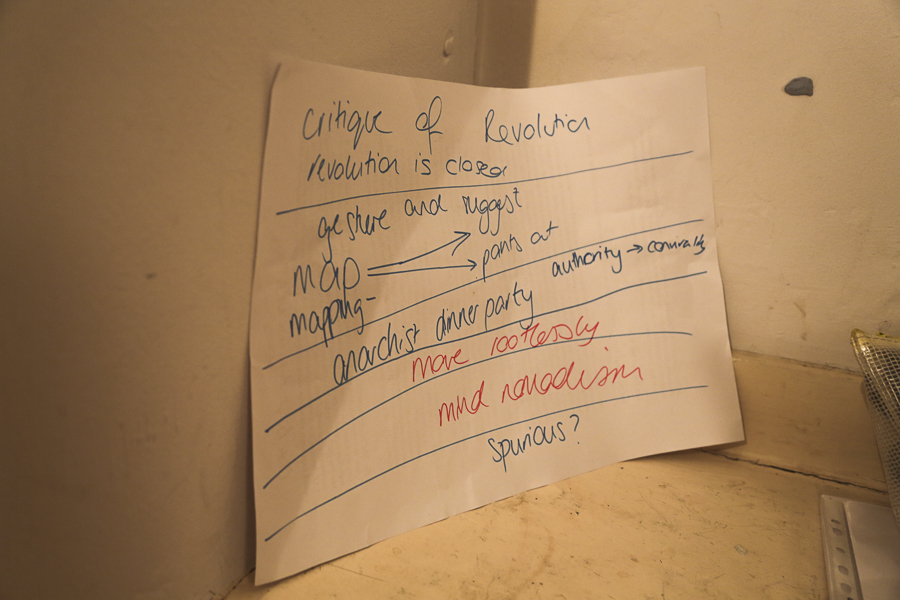 Critique of Revolution
revolution is closed
gesture and suggest
map
points out
mapping-
authority → comrades
anarchist dinner party
move rootlessly
mind nomadism
spurious?